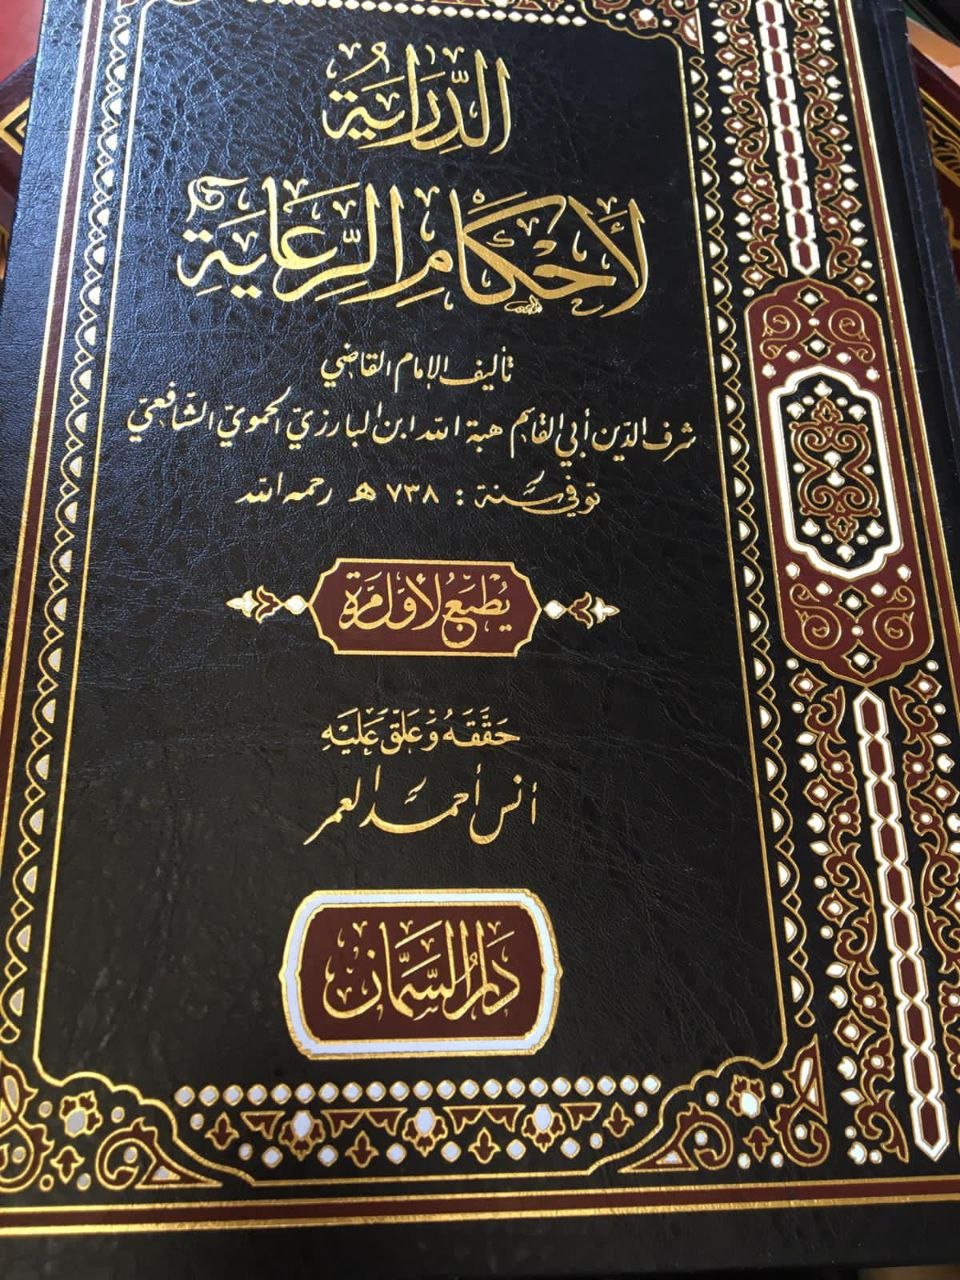 الدِّرَايَة
لأَحْكَامِ الرِّعَايَةِ
تأليف الإمام القاضي
شرف الدّين أبي القاسم هبة الله ابن البارزيّ الحمويّ الشّافعيّ
توفي سنة : ٧٣٨ ه‍ رحمه الله
يُطبَعُ لأوَّل مرَّة
حَقَّقَهُ وَعَلَّقَ عَلَيْهِ
أنس أحمد العمر
دَارُ السَّمَّان